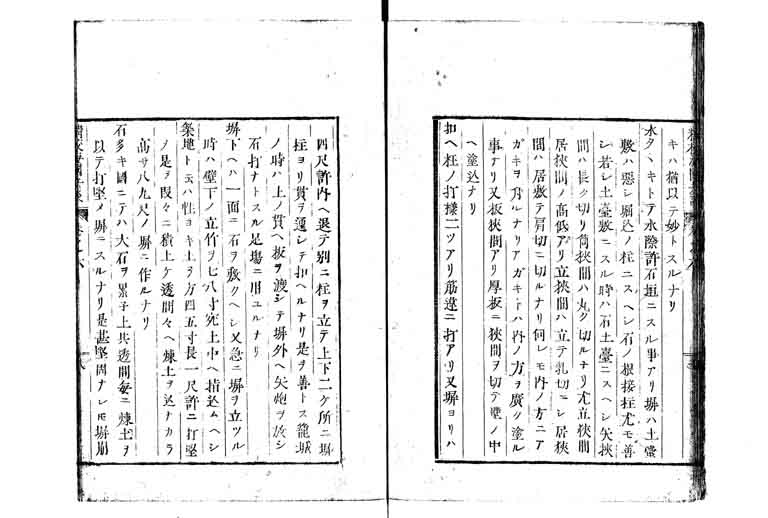 キハ猶以テ妙トスルナリ
水タヽキトテ水際許石垣ニスル事アリ塀ハ土臺
敷ハ惡シ堀込ノ柱ニスヘシ石ノ根接柱尤モ善
シ若シ土臺敷ニスル時ハ石土臺ニスヘシ矢挾
間ハ長ク切リ筒挾間ハ丸ク切ルナリ尤立挾間
居挾間ノ高低アリ立挾間ハ立テ乳切ニシ居挾
間ハ居敷テ肩切ニ切ルナリ何レモ内ノ方ニア
ガキヲ付ルナリアガキトハ内ノ方ヲ廣ク塗ル
事ナリ又板挾間アリ厚板ニ挾間ヲ切テ壁ノ中
ヘ塗込ナリ
扣ヘ柱ノ打樣二ツアリ筋違ニ打アリ又塀ヨリハ
四尺許内ヘ退テ別ニ柱ヲ立テ上下二ケ所ニ塀
柱ヨリ貫ヲ通シテ扣ヘルナリ是ヲ善トス籠城
ノ時ハ上ノ貫ヘ板ヲ渡シテ塀外ヘ矢炮ヲ放シ
石打ナトスル足場ニ用ユルナリ
塀下ヘハ一面ニ石ヲ敷クヘシ又急ニ塀ヲ立ツル
時ハ壁下ノ立竹ヲ七八寸宛土中ヘ揷込ムヘシ
築地ト云ハ性ヨキ土ヲ方四五寸長一尺許ニ打堅
メ是ヲ段々ニ積上ケ透間々ヘ煉土ヲ込ナカラ
高サ八九尺ノ塀ニ作ルナリ
石多キ國ニテハ大石ヲ累子上其透間每ニ煉土ヲ
以テ打堅メ塀ニスルナリ是甚堅固ナレ𪜈塀崩